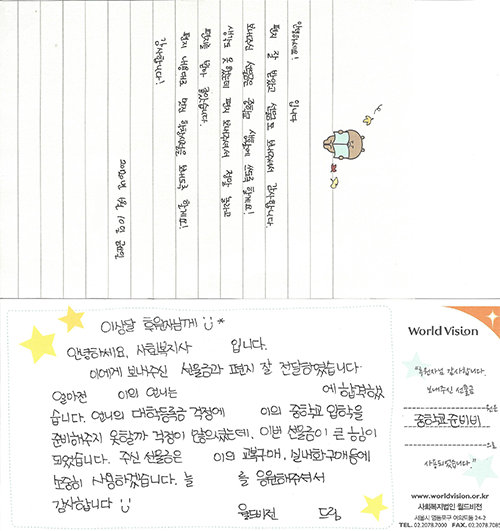 안녕하세요! 입니다
편지 잘 받았고 선물도 보내주셔서 감사합니다.
보내주신 선물금은 중학교 생활에 쓰도록 할게요!
생각도 못했는데 편지 보내주셔서 정말 놀라고
편지를 받아 좋았습니다.
편지 내용대로 멋진 학창시절을 보내도록 할게요!
감사합니다!
2020년 4월 10일 금요일
이상달 후원자님께
안녕하세요, 사회복지사 입니다.
이에게 보내주신 선물금과 편지 잘 전달하였습니다.
얼마전 이의 언니는 에 합격했
습니다. 언니의 대학등록금 걱정에 이의 중학교 입학을
준비해주지 못할까 걱정이 많으셨는데, 이번 선물금이 큰 힘이
되었습니다. 주신 선물금은 이의 교복구매, 실내화구매 등에
소중히 사용하겠습니다. 늘 를 응원해주셔서
감사합니다
월드비전 드림
World Vision
"후원자님 감사합니다.
보내주신 선물금
원은
중학교준비비
으로
사용되었습니다."
www.worldvision.or.kr
사회복지법인 월드비전
서울시 영등포구 여의나루로 24-2
TEL. 02.2078.7000 FAX. 02.2078.70